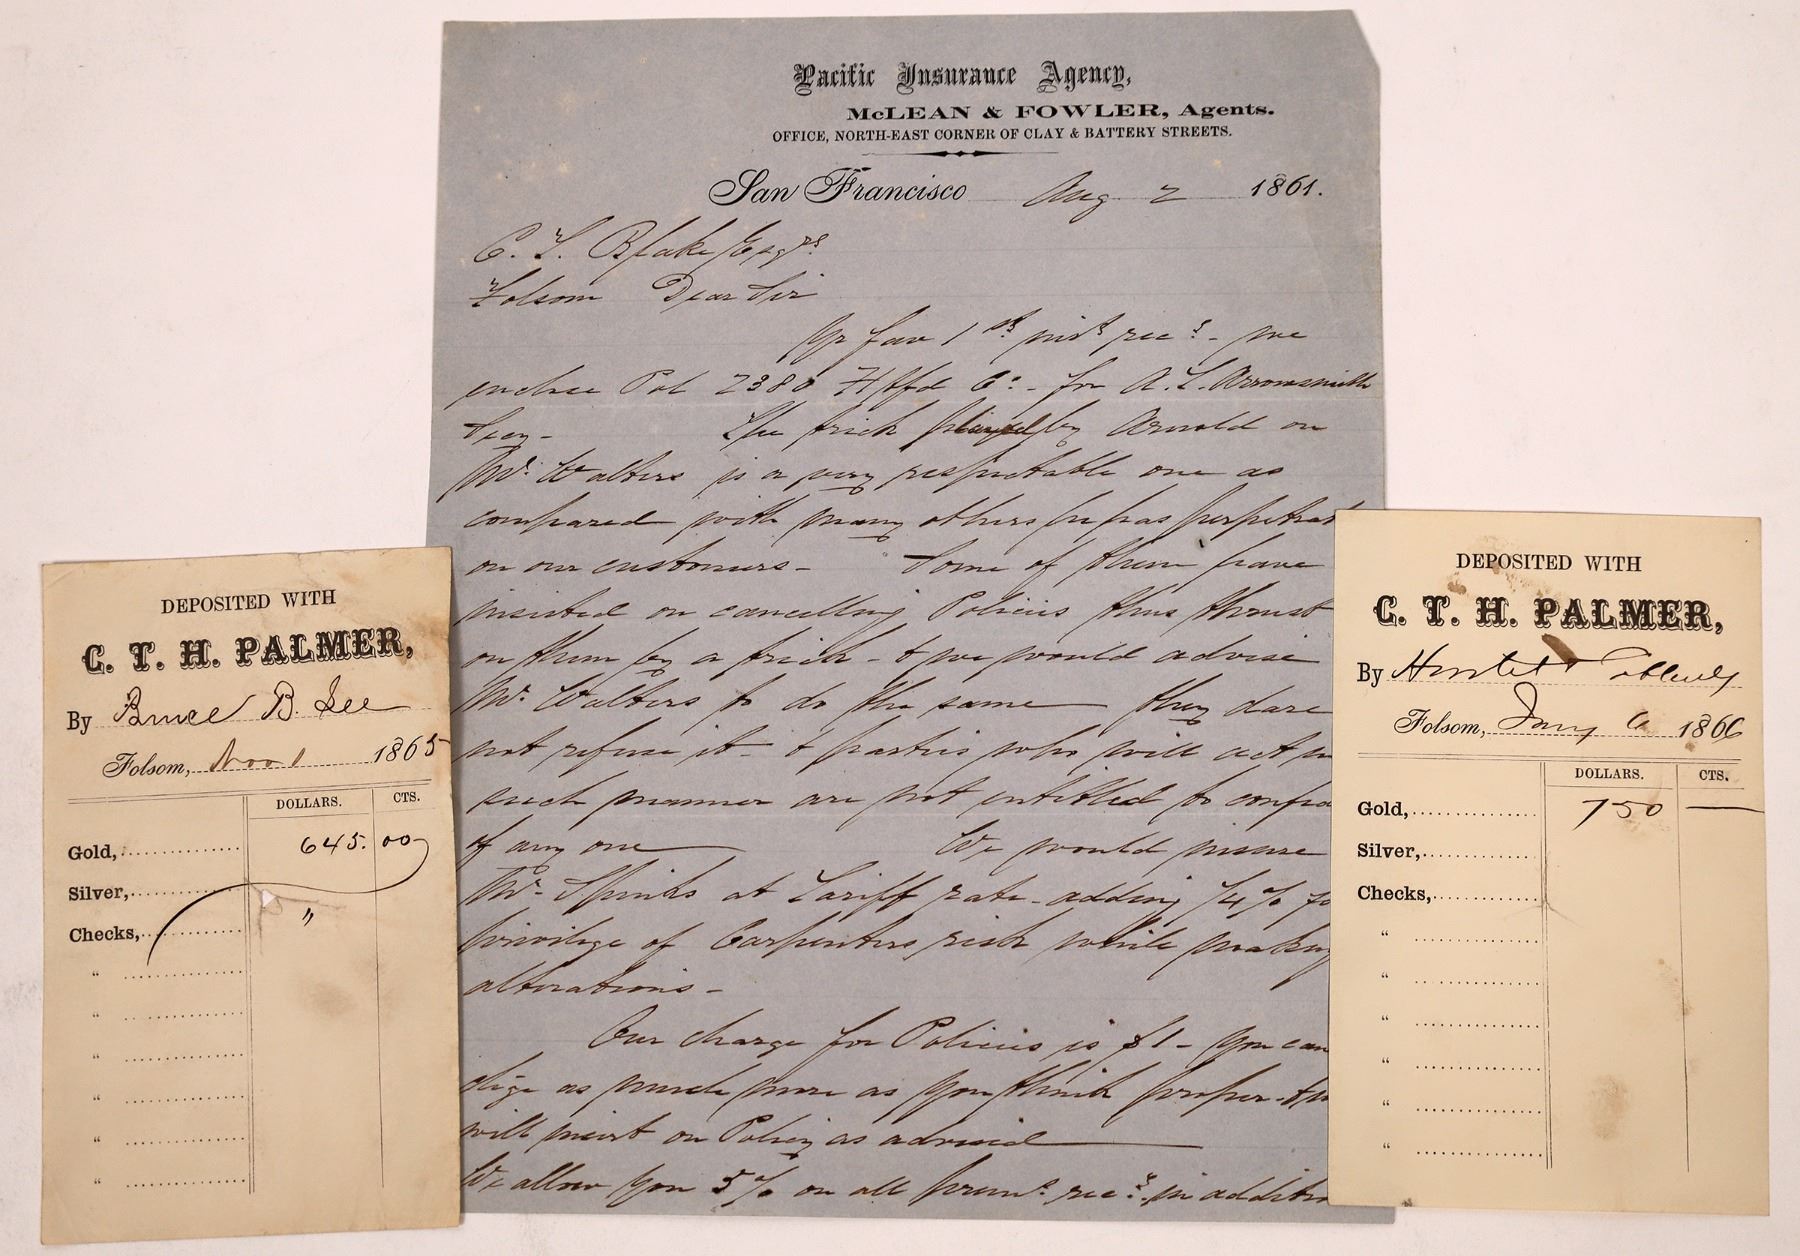 Pacific Insurance Agency,
McLEAN & FOWLER, Agents.
OFFICE, NORTH-EAST CORNER OF CLAY & BATTERY STREETS.
San Francisco Aug 2 1861.
C. T. Blake Esqr
Folsom Dear Sir
Yr fav 1st inst recd - we
enclose Pol 2380 Htfd Co. - for A. L. Arrowsmith
The trick played by Arnold on
Mr. Walters is a very respectable one as
compared with many others he has perpetrat
on our customers - Some of them have
insisted on cancelling Policies thus thrust
on them by a trick - & we would advise
Mr. Walters to do the same they dare
not refuse it - & parties who will act in
such manner are not entitled to
of any one We would insure
Mr. Spinks at Tariff rate - adding 1/4 %
privilege of Carpenters risk while making
alterations -
Our charge for Policies is $1 - You can
as much more as you think proper - &
will insert on Policy as advised
We allow you 5% on all prems. recd. in addition
DEPOSITED WITH
C. T. H. PALMER,
By Bruce B. Lee
Folsom, Nov 1 1865
DOLLARS. CTS.
Gold, 645. 00
Silver,
Checks, "
"
"
"
"
"
"
DEPOSITED WITH
C. T. H. PALMER,
By
Folsom, Jany 6 1866
DOLLARS. CTS.
Gold, 750 —
Silver,
Checks,
"
"
"
"
"
"